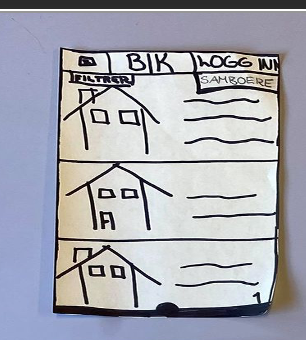 BIK LOGG INN
FILTRER SAMBOERE
1